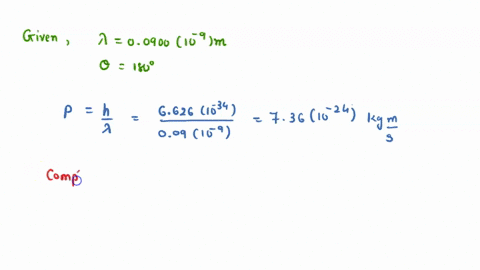 Given, λ = 0.0900 (10⁻⁹) m
θ = 180°
P = h/λ = 6.626 (10⁻³⁴) / 0.09 (10⁻⁹) = 7.36 (10⁻²⁴) kg m/s
Comp